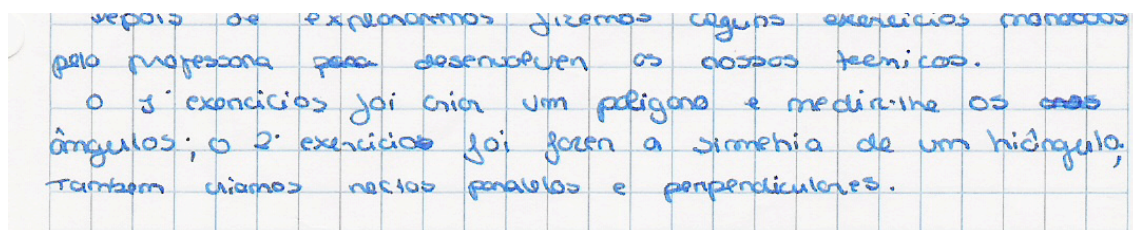 depois de explorarmos fizemos alguns exercícios mandados
pela professora para desenvolver as nossas tecnicas.
O 1º exercicios foi criar um poligono e medir-lhe os
ângulos; o 2º exercicio foi fazer a simetria de um triângulo,
Tambem criamos rectas paralelas e perpendiculares.